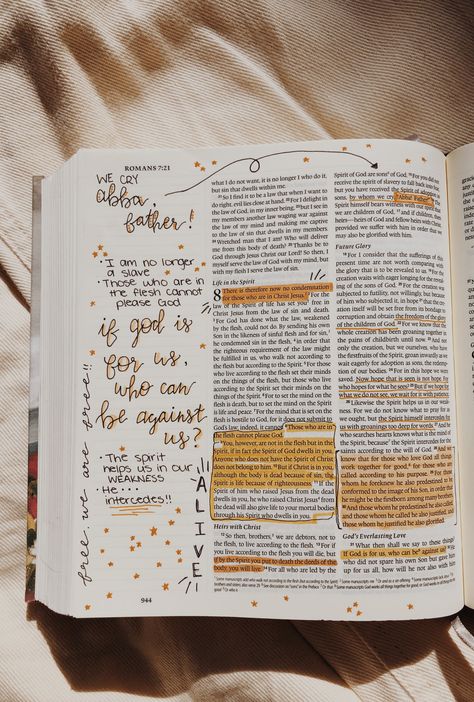 ROMANS 7:21
WE CRY
abba,
father!
· I am no longer
a slave
· Those who are in
the flesh cannot
please God
if god is
for us,
who can
be against
us?
· The Spirit
helps us in our
WEAKNESS
· He....
intercedes!!
free. we are free!!
ALIVE
944
what I do not want, it is no longer I who do it,
but sin that dwells within me.
21 So I find it to be a law that when I want to
do right, evil lies close at hand. 22 For I delight in
the law of God, in my inner being, 23 but I see in
my members another law waging war against
the law of my mind and making me captive
to the law of sin that dwells in my members.
24 Wretched man that I am! Who will deliver
me from this body of death? 25 Thanks be to
God through Jesus Christ our Lord! So then, I
myself serve the law of God with my mind, but
with my flesh I serve the law of sin.
Life in the Spirit
8 There is therefore now no condemnation
for those who are in Christ Jesus. 2 For the
law of the Spirit of life has set you free in
Christ Jesus from the law of sin and death.
3 For God has done what the law, weakened
by the flesh, could not do. By sending his own
Son in the likeness of sinful flesh and for sin,
he condemned sin in the flesh, 4 in order that
the righteous requirement of the law might
be fulfilled in us, who walk not according to
the flesh but according to the Spirit. 5 For those
who live according to the flesh set their minds
on the things of the flesh, but those who live
according to the Spirit set their minds on the
things of the Spirit. 6 For to set the mind on the
flesh is death, but to set the mind on the Spirit
is life and peace. 7 For the mind that is set on the
flesh is hostile to God, for it does not submit to
God's law; indeed, it cannot. 8 Those who are in
the flesh cannot please God.
9 You, however, are not in the flesh but in the
Spirit, if in fact the Spirit of God dwells in you.
Anyone who does not have the Spirit of Christ
does not belong to him. 10 But if Christ is in you,
although the body is dead because of sin, the
Spirit is life because of righteousness. 11 If the
Spirit of him who raised Jesus from the dead
dwells in you, he who raised Christ Jesus from
the dead will also give life to your mortal bodies
through his Spirit who dwells in you.
Heirs with Christ
12 So then, brothers, we are debtors, not to
the flesh, to live according to the flesh. 13 For if
you live according to the flesh you will die, but
if by the Spirit you put to death the deeds of the
body, you will live. 14 For all who are led by the
Spirit of God are sons of God. 15 For you did not
receive the spirit of slavery to fall back into fear,
but you have received the Spirit of adoption as
sons, by whom we cry, "Abba! Father!" 16 The
Spirit himself bears witness with our spirit that
we are children of God, 17 and if children, then
heirs—heirs of God and fellow heirs with Christ,
provided we suffer with him in order that we
may also be glorified with him.
Future Glory
18 For I consider that the sufferings of this
present time are not worth comparing with
the glory that is to be revealed to us. 19 For the
creation waits with eager longing for the reveal-
ing of the sons of God. 20 For the creation was
subjected to futility, not willingly, but because
of him who subjected it, in hope 21 that the cre-
ation itself will be set free from its bondage to
corruption and obtain the freedom of the glory
of the children of God. 22 For we know that the
whole creation has been groaning together in
the pains of childbirth until now. 23 And not
only the creation, but we ourselves, who have
the firstfruits of the Spirit, groan inwardly as we
wait eagerly for adoption as sons, the redemp-
tion of our bodies. 24 For in this hope we were
saved. Now hope that is seen is not hope. For
who hopes for what he sees? 25 But if we hope for
what we do not see, we wait for it with patience.
26 Likewise the Spirit helps us in our weak-
ness. For we do not know what to pray for as
we ought, but the Spirit himself intercedes for
us with groanings too deep for words. 27 And he
who searches hearts knows what is the mind of
the Spirit, because the Spirit intercedes for the
saints according to the will of God. 28 And we
know that for those who love God all things
work together for good, for those who are
called according to his purpose. 29 For those
whom he foreknew he also predestined to be
conformed to the image of his Son, in order that
he might be the firstborn among many brothers.
30 And those whom he predestined he also called,
and those whom he called he also justified, and
those whom he justified he also glorified.
God's Everlasting Love
31 What then shall we say to these things?
If God is for us, who can be against us? 32 He
who did not spare his own Son but gave him
up for us all, how will he not also with him